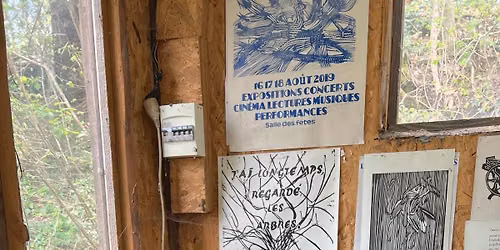 16 17 18 AOÛT 2019
EXPOSITIONS CONCERTS
CINÉMA LECTURES MUSIQUES
PERFORMANCES
Salle des fêtes
J'AI LONGTEMPS
REGARDÉ
LES
ARBRES